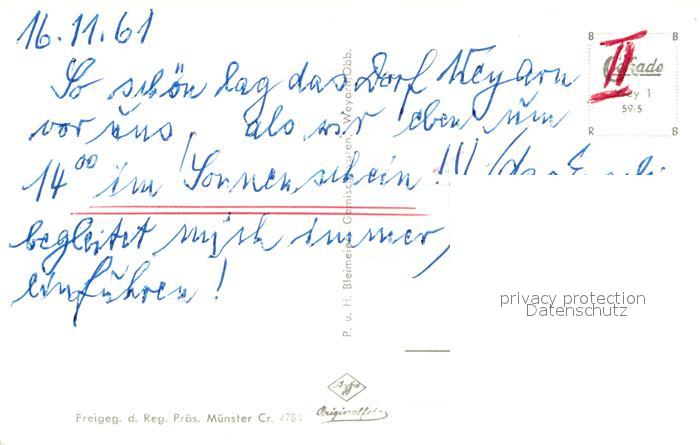 16.11.61
So schön lag das Dorf Weyarn
vor uns, als wir eben um
14⁰⁰ im Sonnenschein!!!
begleitet mich immer,
einführen!
II
B B
R B
Cekade
Wey 1
59/5
P. u. H. Bleimeier, Gemischtwaren, Weyarn/Obb.
privacy protection
Datenschutz
Agfa
Originalfoto
Freigeg. d. Reg. Präs. Münster Cr.